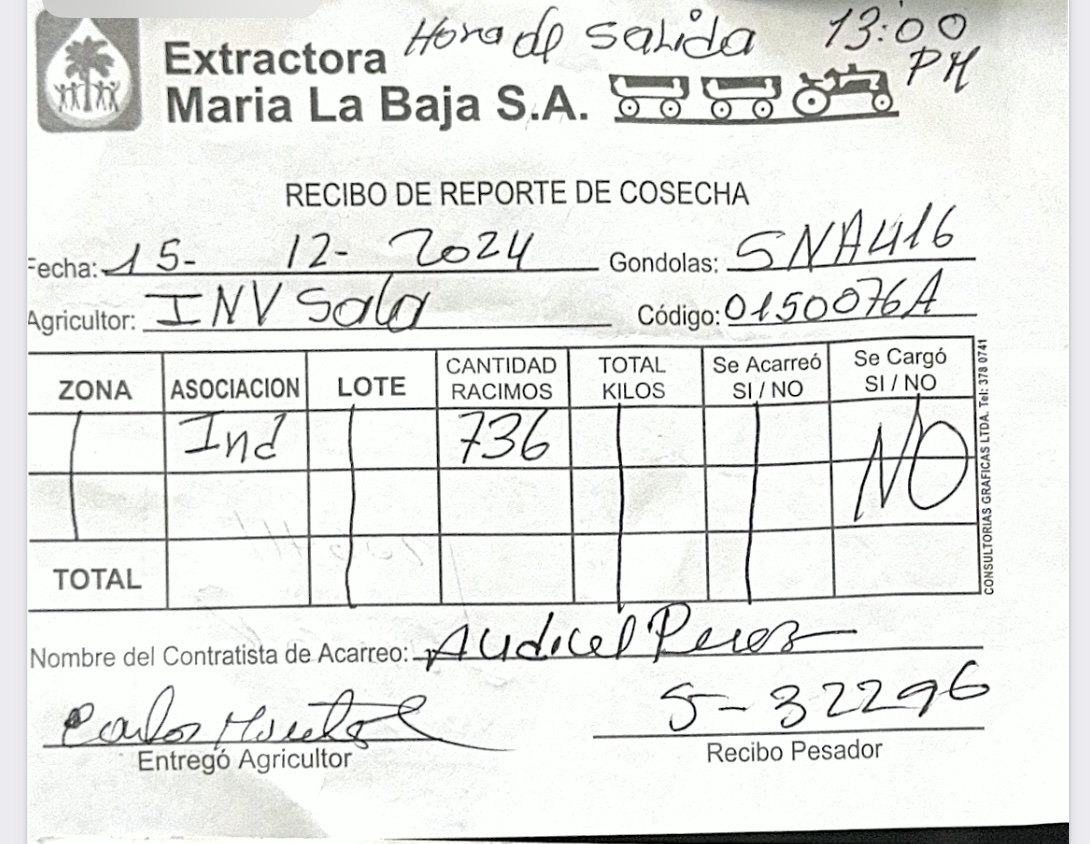 Hora de salida 13:00 PM
Extractora
Maria La Baja S.A.
RECIBO DE REPORTE DE COSECHA
Fecha: 15- 12- 2024 Gondolas: SNA416
Agricultor: INV Sala Código: 0150076A
ZONA ASOCIACION LOTE CANTIDAD RACIMOS TOTAL KILOS Se Acarreó SI / NO Se Cargó SI / NO
Ind 736 NO
TOTAL
CONSULTORIAS GRAFICAS LTDA. Tel: 378 0741
Nombre del Contratista de Acarreo: Audicel Perez
Carlos
S-32296
Entregó Agricultor Recibo Pesador